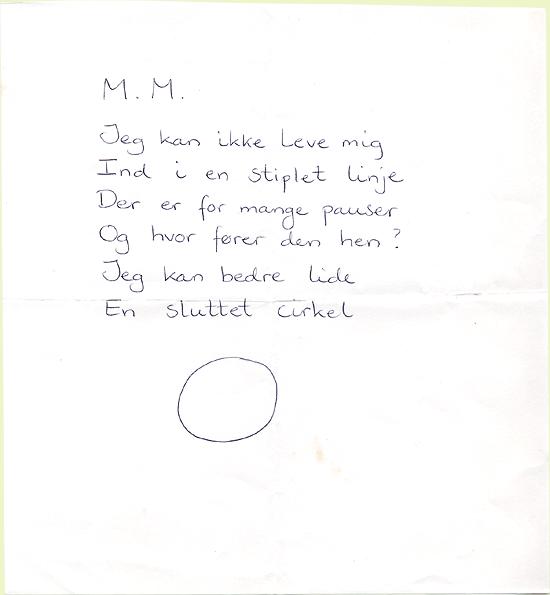 M. M.
Jeg kan ikke Leve mig
Ind i en stiplet linje
Der er for mange pauser
Og hvor fører den hen?
Jeg kan bedre lide
En sluttet cirkel